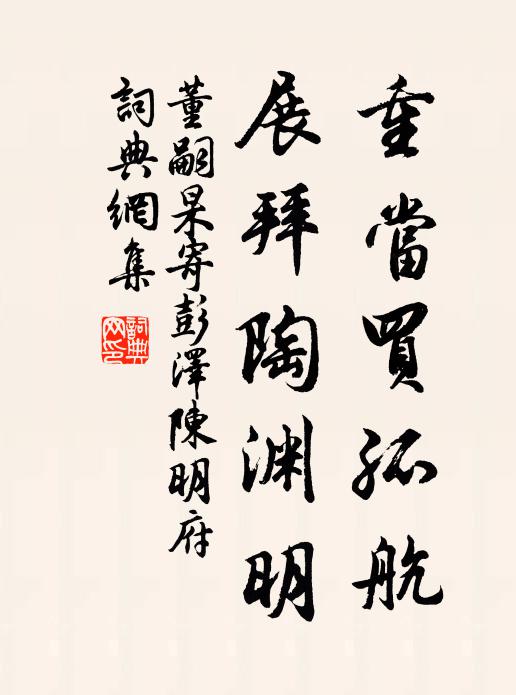 重當買孤航
展拜陶渊明
董嗣杲寄彭澤陳明府
詞典網集
詞典网印